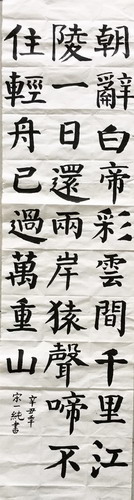 朝辭白帝彩雲間千里江
陵一日還兩岸猿聲啼不
住輕舟已過萬重山
辛丑年
宗一純書